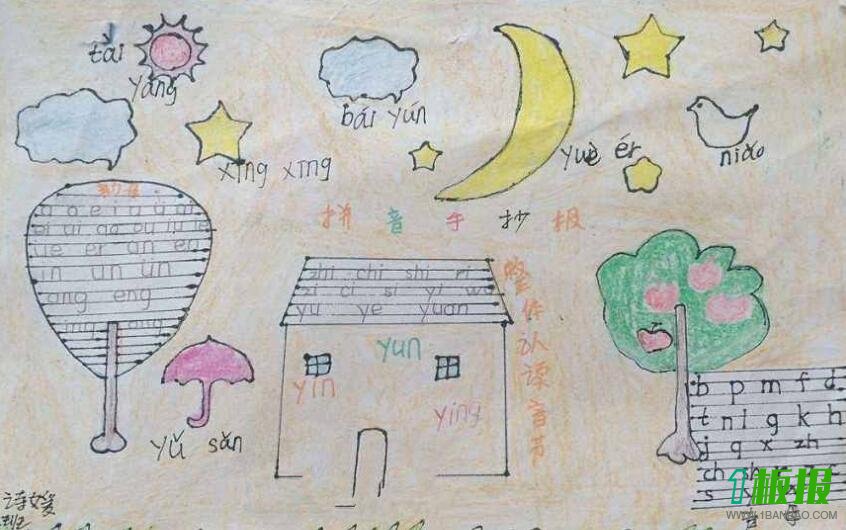 tài
yáng
bái yún
xīng xīng
yuè ér
niǎo
拼音手抄报
a o e i u ü ai
ei ui ao ou iu ie
üe er an en
in un ün
ang eng
ing ong
zhi chi shi ri
zi ci si yi wu
yu ye yuan
yin
yun
ying
整体认读音节
yǔ sǎn
b p m f d
t n l g k h
j q x zh
ch sh
s
1板报
WWW.1BANBAO.COM